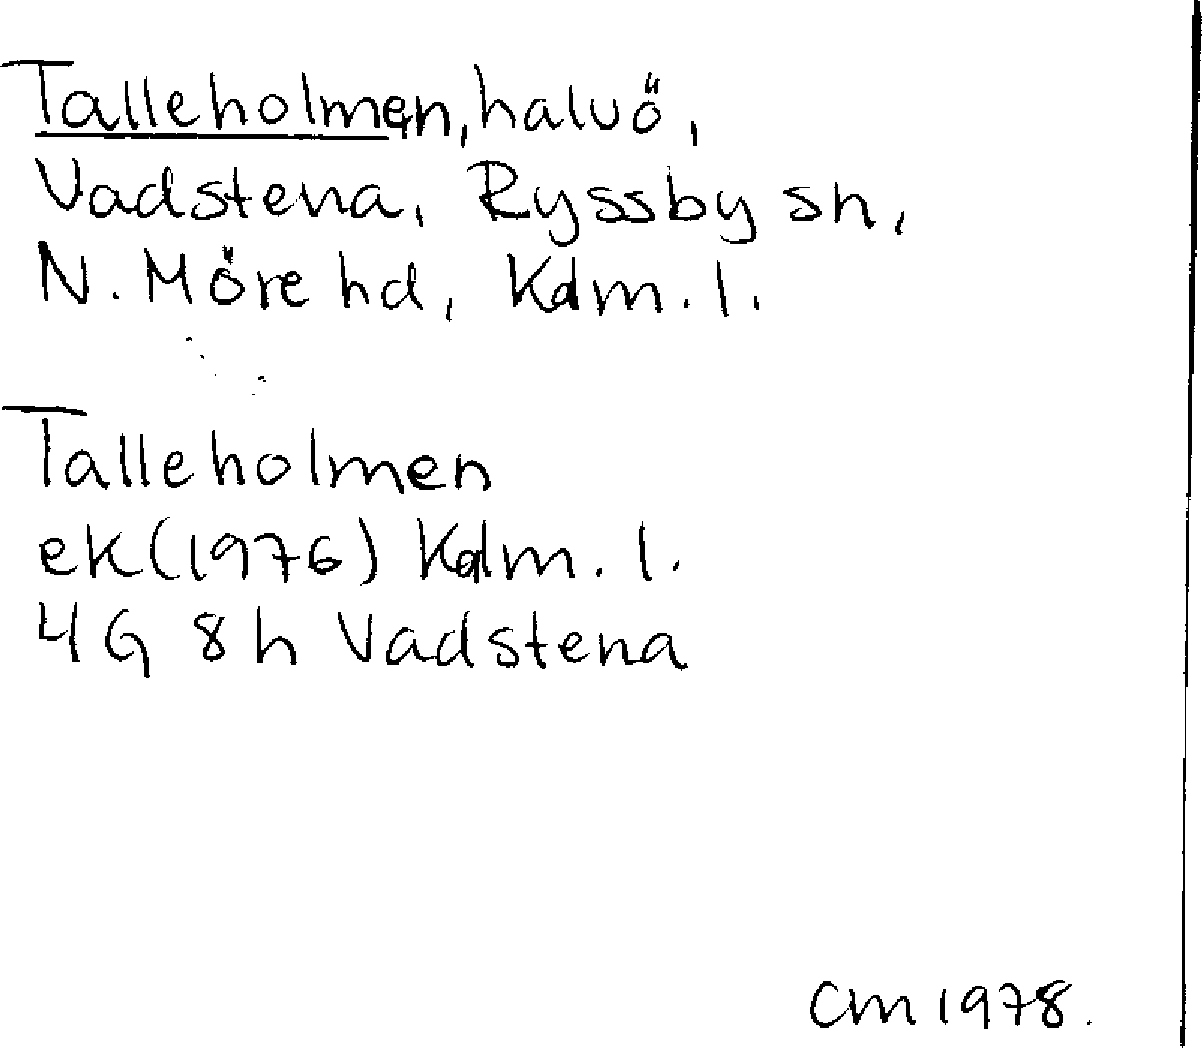 Talleholmen, halvö,
Vadstena, Ryssby sn,
N. Möre hd, Kalm. l.
Talleholmen
ek (1976) Kalm. l.
4G 8h Vadstena
CM 1978.